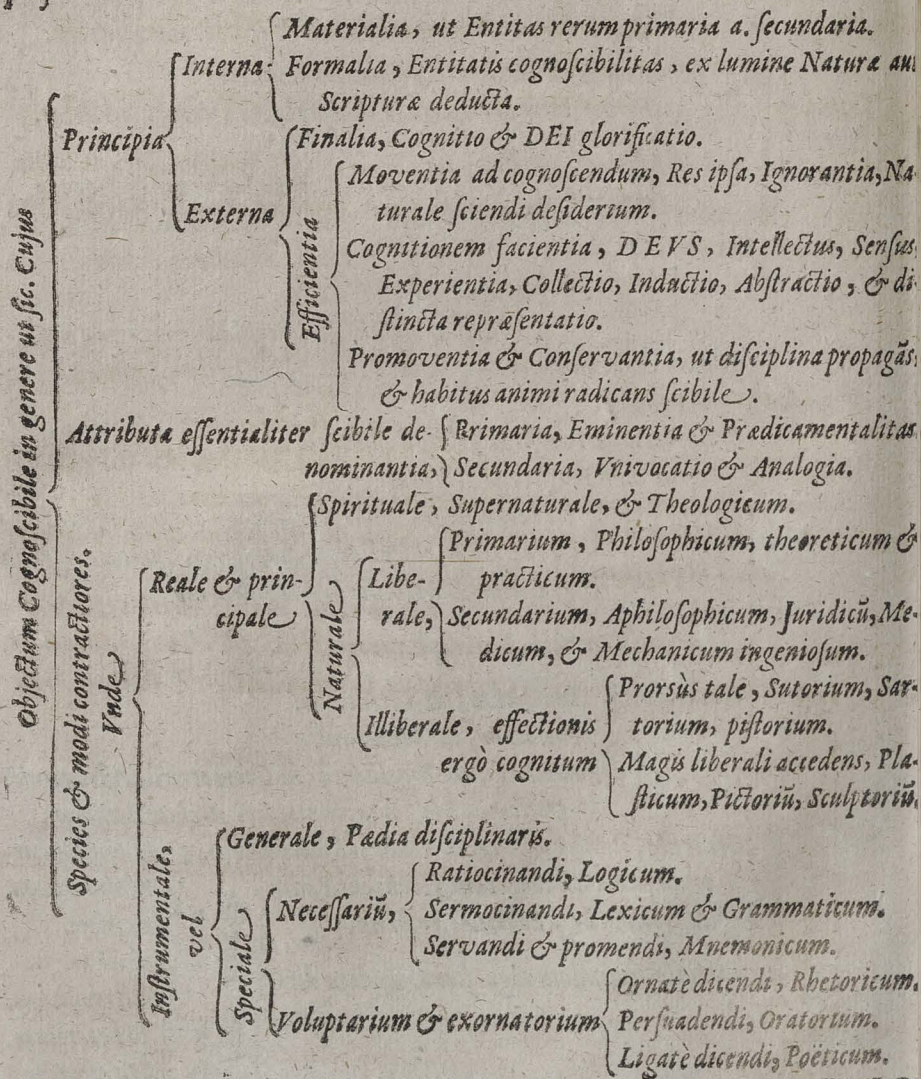 Materialia, ut Entitas rerum primaria a. ſecundaria.
Interna Formalia, Entitatis cognoſcibilitas, ex lumine Naturæ aut
Scripturæ deducta.
Principia Finalia, Cognitio & DEI glorificatio.
Moventia ad cognoſcendum, Res ipſa, Ignorantia, Na-
Externa turale ſciendi deſiderium.
Cognitionem facientia, DEVS, Intellectus, Senſus,
Efficientia
Experientia, Collectio, Inductio, Abſtractio, & di-
ſtincta repræſentatio.
Promoventia & Conſervantia, ut diſciplina propagãs,
& habitus animi radicans ſcibile.
Objectum Cognoſcibile in genere ut ſic. Cujus
Attributa eſſentialiter ſcibile de- Rrimaria, Eminentia & Prædicamentalitas
nominantia, Secundaria, Vnivocatio & Analogia.
Species & modi contractiores.
Vnde
Spirituale, Supernaturale, & Theologicum.
Reale & prin-
cipale
Naturale
Libe-
rale,
Primarium, Philoſophicum, theoreticum &
practicum.
Secundarium, Aphiloſophicum, Juridicũ, Me-
dicum, & Mechanicum ingenioſum.
Illiberale, effectionis
ergò cognitum
Prorsùs tale, Sutorium, Sar-
torium, piſtorium.
Magis liberali accedens, Pla-
ſticum, Pictoriũ, Sculptoriũ,
Inſtrumentale,
vel
Generale, Pædia diſciplinaris.
Speciale
Neceſſariũ,
Ratiocinandi, Logicum.
Sermocinandi, Lexicum & Grammaticum.
Servandi & promendi, Mnemonicum.
Voluptarium & exornatorium
Ornatè dicendi, Rhetoricum.
Perſuadendi, Oratorium.
Ligatè dicendi, Poëticum.